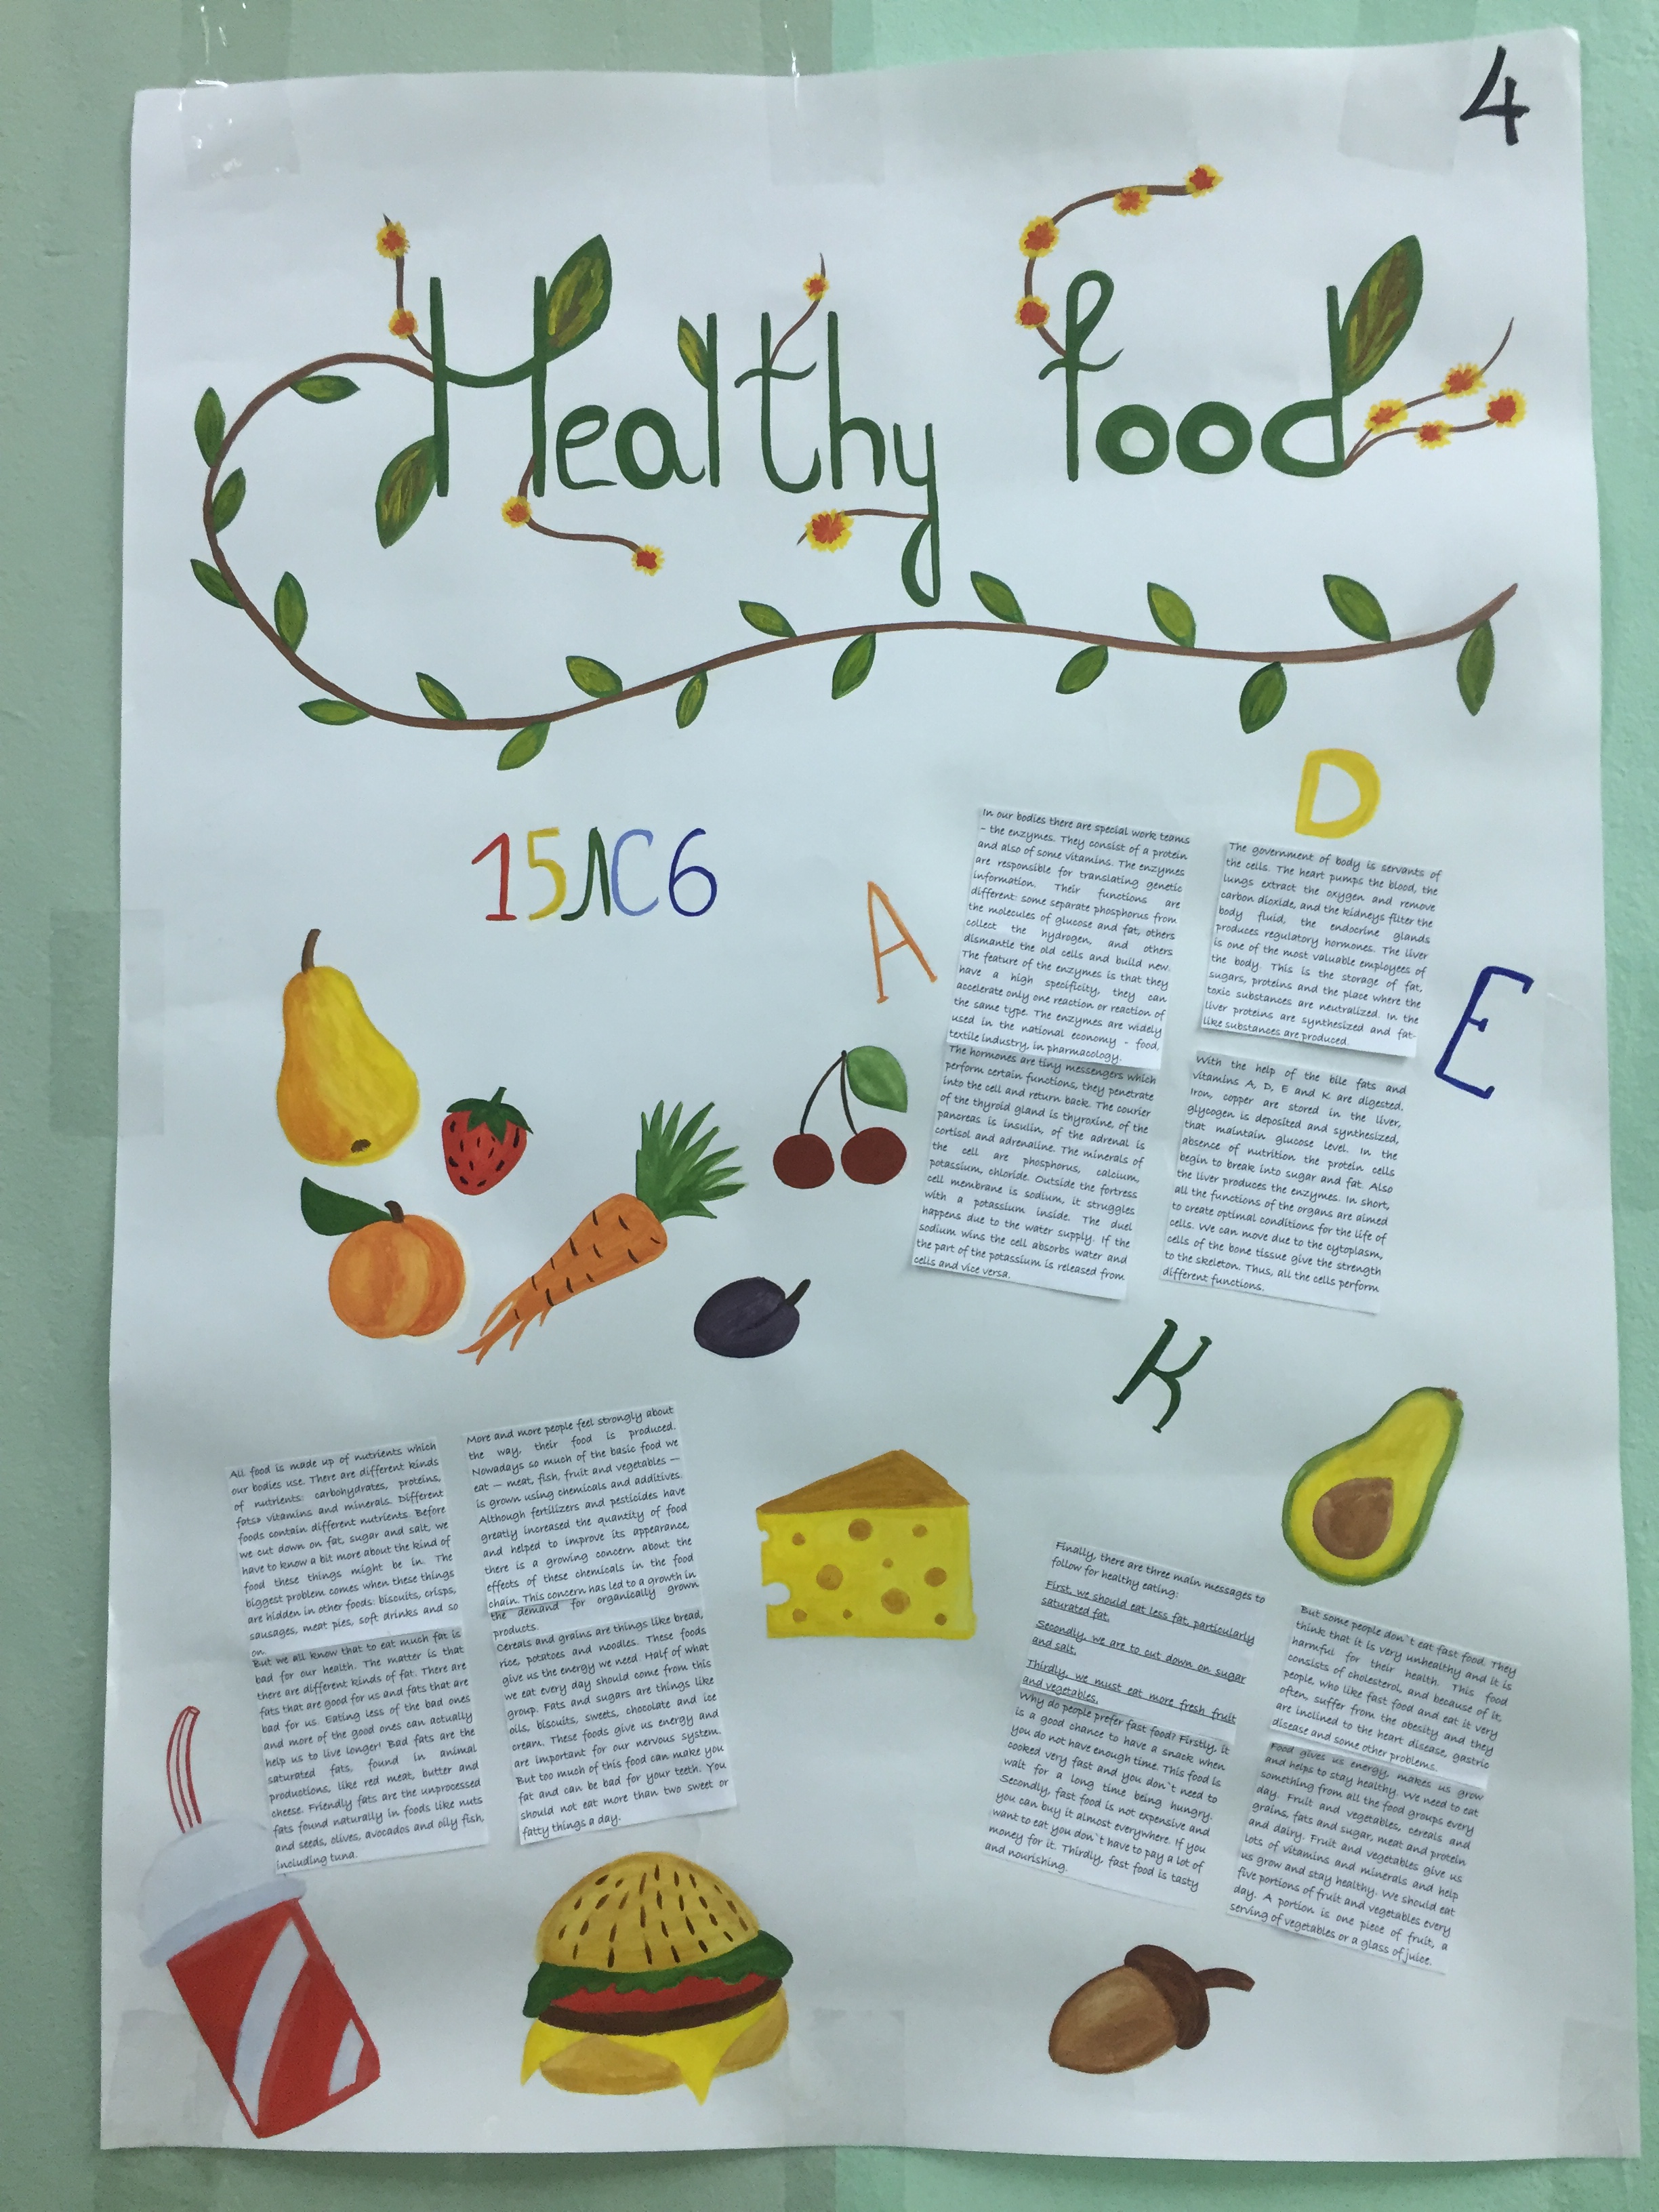 4
Healthy food
15ЛС6
A
D
E
K
In our bodies there are special work teams
- the enzymes. They consist of a protein
and also of some vitamins. The enzymes
are responsible for translating genetic
information. Their functions are
different: some separate phosphorus from
the molecules of glucose and fat, others
collect the hydrogen, and others
dismantle the old cells and build new.
The feature of the enzymes is that they
have a high specificity, they can
accelerate only one reaction or reaction of
the same type. The enzymes are widely
used in the national economy - food,
textile industry, in pharmacology.
The hormones are tiny messengers which
perform certain functions, they penetrate
into the cell and return back. The courier
of the thyroid gland is thyroxine, of the
pancreas is insulin, of the adrenal is
cortisol and adrenaline. The minerals of
the cell are phosphorus, calcium,
potassium, chloride. Outside the fortress
cell membrane is sodium, it struggles
with a potassium inside. The duel
happens due to the water supply. If the
sodium wins the cell absorbs water and
the part of the potassium is released from
cells and vice versa.
The government of body is servants of
the cells. The heart pumps the blood, the
lungs extract the oxygen and remove
carbon dioxide, and the kidneys filter the
body fluid, the endocrine glands
produces regulatory hormones. The liver
is one of the most valuable employees of
the body. This is the storage of fat,
sugars, proteins and the place where the
toxic substances are neutralized. In the
liver proteins are synthesized and fat-
like substances are produced.
With the help of the bile fats and
vitamins A, D, E and K are digested.
Iron, copper are stored in the liver,
glycogen is deposited and synthesized,
that maintain glucose level. In the
absence of nutrition the protein cells
begin to break into sugar and fat. Also
the liver produces the enzymes. In short,
all the functions of the organs are aimed
to create optimal conditions for the life of
cells. We can move due to the cytoplasm,
cells of the bone tissue give the strength
to the skeleton. Thus, all the cells perform
different functions.
All food is made up of nutrients which
our bodies use. There are different kinds
of nutrients: carbohydrates, proteins,
fats» vitamins and minerals. Different
foods contain different nutrients. Before
we cut down on fat, sugar and salt, we
have to know a bit more about the kind of
food these things might be in. The
biggest problem comes when these things
are hidden in other foods: biscuits, crisps,
sausages, meat pies, soft drinks and so
on.
But we all know that to eat much fat is
bad for our health. The matter is that
there are different kinds of fat. There are
fats that are good for us and fats that are
bad for us. Eating less of the bad ones
and more of the good ones can actually
help us to live longer! Bad fats are the
saturated fats, found in animal
productions, like red meat, butter and
cheese. Friendly fats are the unprocessed
fats found naturally in foods like nuts
and seeds, olives, avocados and oily fish,
including tuna.
More and more people feel strongly about
the way, their food is produced.
Nowadays so much of the basic food we
eat — meat, fish, fruit and vegetables —
is grown using chemicals and additives.
Although fertilizers and pesticides have
greatly increased the quantity of food
and helped to improve its appearance,
there is a growing concern about the
effects of these chemicals in the food
chain. This concern has led to a growth in
the demand for organically grown
products.
Cereals and grains are things like bread,
rice, potatoes and noodles. These foods
give us the energy we need. Half of what
we eat every day should come from this
group. Fats and sugars are things like
oils, biscuits, sweets, chocolate and ice
cream. These foods give us energy and
are important for our nervous system.
But too much of this food can make you
fat and can be bad for your teeth. You
should not eat more than two sweet or
fatty things a day.
Finally, there are three main messages to
follow for healthy eating:
First, we should eat less fat, particularly
saturated fat.
Secondly, we are to cut down on sugar
and salt.
Thirdly, we must eat more fresh fruit
and vegetables.
Why do people prefer fast food? Firstly, it
is a good chance to have a snack when
you do not have enough time. This food is
cooked very fast and you don`t need to
wait for a long time being hungry.
Secondly, fast food is not expensive and
you can buy it almost everywhere. If you
want to eat you don`t have to pay a lot of
money for it. Thirdly, fast food is tasty
and nourishing.
But some people don`t eat fast food. They
think that it is very unhealthy and it is
harmful for their health. This food
consists of cholesterol, and because of it,
people, who like fast food and eat it very
often, suffer from the obesity and they
are inclined to the heart disease, gastric
disease and some other problems.
Food gives us energy, makes us grow
and helps to stay healthy. We need to eat
something from all the food groups every
day. Fruit and vegetables, cereals and
grains, fats and sugar, meat and protein
and dairy. Fruit and vegetables give us
lots of vitamins and minerals and help
us grow and stay healthy. We should eat
five portions of fruit and vegetables every
day. A portion is one piece of fruit, a
serving of vegetables or a glass of juice.